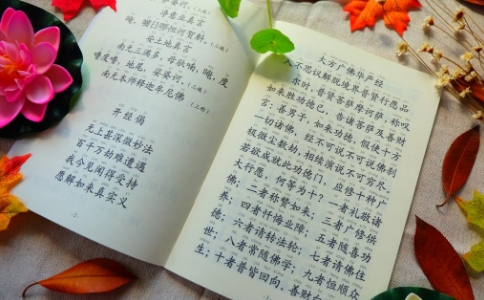 净意业真言
安土地真言
南无三满多，母驮喃，唵，度
噜度噜，地尾，娑婆诃。（三遍）
南无本师释迦牟尼佛（三遍）
开经偈
无上甚深微妙法
百千万劫难遭遇
我今见闻得受持
愿解如来真实义
大方广佛华严经
入不思议解脱境界普贤行愿品
尔时，普贤菩萨摩诃萨，称叹
如来胜功德已，告诸菩萨及善财
言：善男子，如来功德，假使十方
一切诸佛，经不可说不可说佛刹
极微尘数劫，相续演说不可穷尽。
若欲成就此功德门，应修十种广
大行愿。何等为十？一者礼敬诸
佛；二者称赞如来；三者广修供
养；四者忏悔业障；五者随喜功
德；六者请转法轮；七者请佛住
世；八者常随佛学；九者恒顺众
生；十者普皆回向。善财